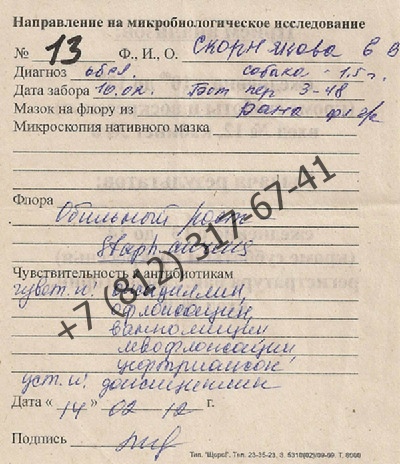 Направление на микробиологическое исследование
№ 13 Ф., И., О. Скорнякова Е В
Диагноз собака - 1.5 г.
Дата забора 10.02. 3-48
Мазок на флору из Рана
Микроскопия нативного мазка
Флора
Обильный рост
Staph aureus
+7 (812) 317-67-41
Чувствительность к антибиотикам
чувст. к:
офлоксацин
ванкомицин
левофлоксацин
цефтриаксон
уст. к: доксициклин
Дата « 14 » 02 12 г.
Подпись
Тип. "Щорс". Тел. 23-35-23.